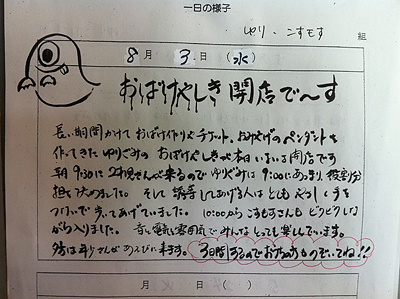 一日の様子
ゆり・こすもす 組
8月 3日(水)
おばけやしき 開店で〜す
長い期間かけて おばけ作りや チケット、おみやげのペンダントを
作ってきた ゆりぐみの おばけやしきが 本日いよいよ開店です
朝 9:30に 2才児さんが来るので ゆりぐみは 9:00にあつまり 役割分
担を決めました。そして 誘導してあげる人は とても やさしく手を
つないで 歩いてあげていました。10:00から こすもすさんも ドキドキしな
がら入りました。音と電気と雰囲気で みんな とっても楽しんでいます。
今日は年少さんが あそびに来ます。3日間するので お家の方ものぞいてね!!
月 日( )